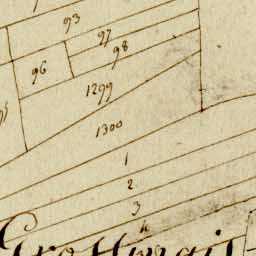 93
97
98
96
1299
1300
1
2
3
4